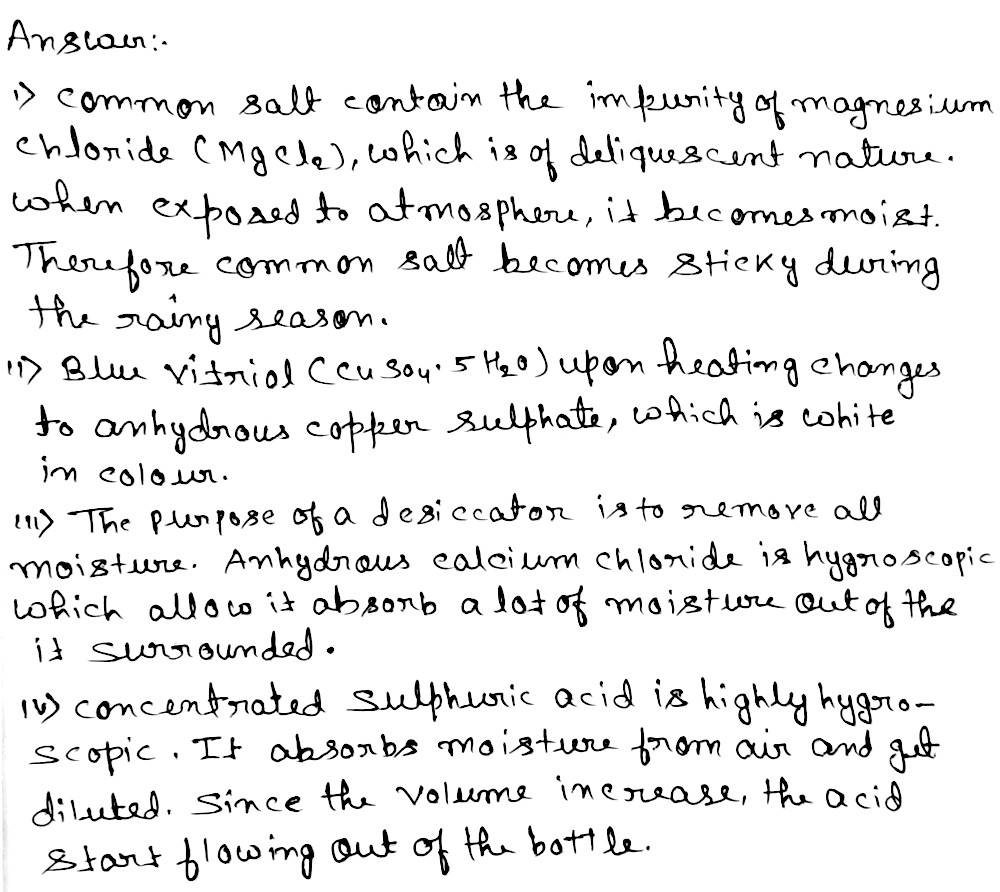 Answer:-
i) common salt contain the impurity of magnesium
chloride (MgCl₂), which is of deliquescent nature.
when exposed to atmosphere, it becomes moist.
Therefore common salt becomes sticky during
the rainy season.
ii) Blue vitriol (CuSO₄. 5 H₂O) upon heating changes
to anhydrous copper sulphate, which is white
in colour.
iii) The purpose of a desiccator is to remove all
moisture. Anhydrous calcium chloride is hygroscopic
which allow it absorb a lot of moisture out of the
it surrounded.
iv) concentrated sulphuric acid is highly hygro-
scopic. It absorbs moisture from air and get
diluted. Since the volume increase, the acid
start flowing out of the bottle.